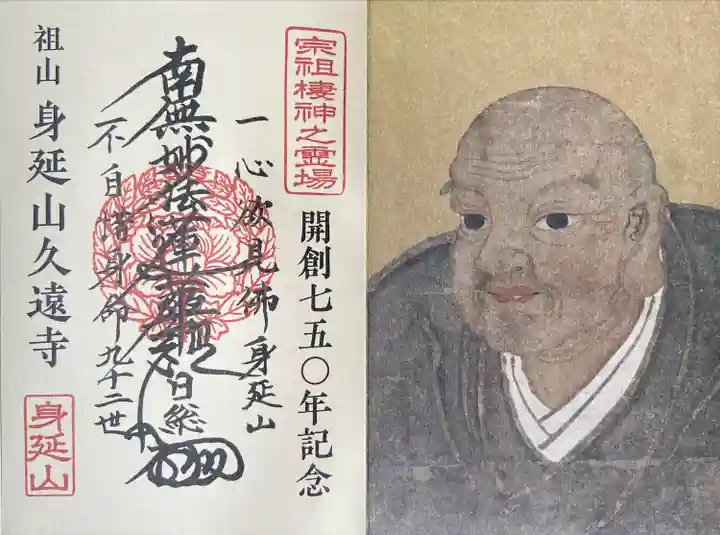 宗祖棲神之霊場
開創七五〇年記念
一心欲見佛身延山
南無妙法蓮華経
日総
不自惜身命九十二世
祖山 身延山久遠寺
身延山